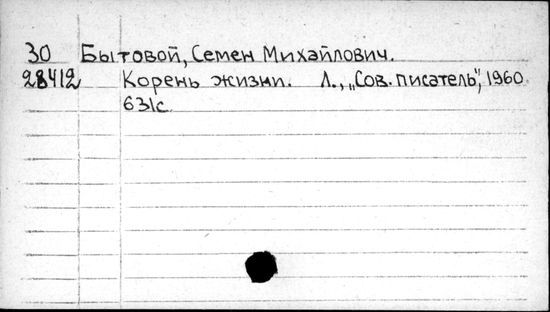 30 Бытовой, Семен Михайлович.
28412 Корень жизни. Л., „Сов. писатель", 1960
631с.